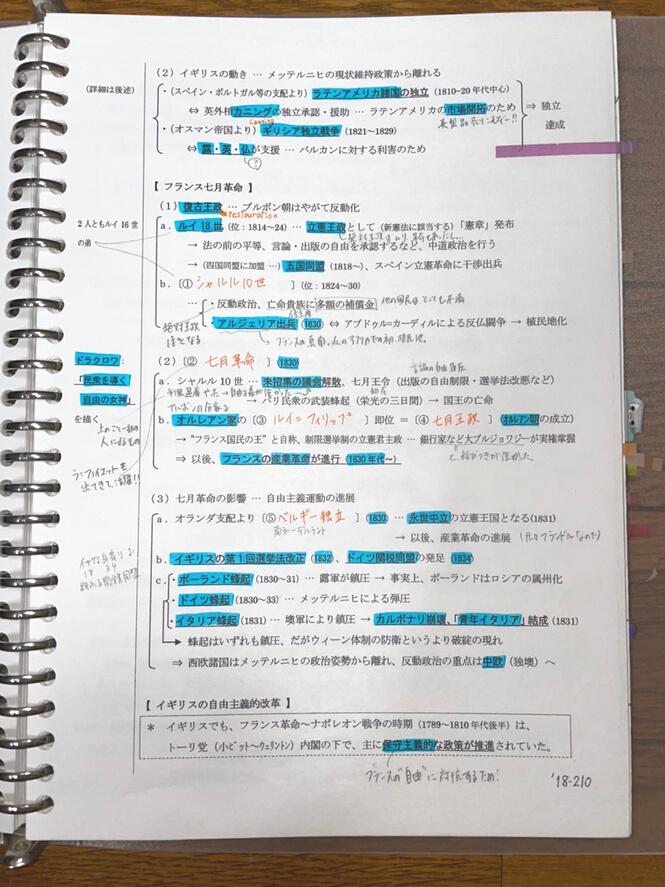 （2）イギリスの動き … メッテルニヒの現状維持政策から離れる
（詳細は後述）
・（スペイン・ポルトガル等の支配より）ラテンアメリカ諸国の独立（1810~20 年代中心）
⇔ 英外相カニングの独立承認・援助 … ラテンアメリカの市場開拓のため
⇒ 独立
達成
Canning
・（オスマン帝国より）ギリシア独立戦争（1821～1829）
⇔ 露・英・仏が支援 … バルカンに対する利害のため
?
【 フランス七月革命 】
（1）復古王政 … ブルボン朝はやがて反動化
restauration
2 人ともルイ 16 世
の弟
a．ルイ 18 世（位：1814～24）… 立憲王政として（新憲法に該当する）「憲章」発布
→ 法の前の平等、言論・出版の自由を承認するなど、中道政治を行う
→（四国同盟に加盟 …）五国同盟（1818～）、スペイン立憲革命に干渉出兵
b．［① シャルル10世 ］（位：1824～30）
… ・反動政治、亡命貴族に多額の補償金
・アルジェリア出兵（1830）⇔ アブドゥル=カーディルによる反仏闘争 → 植民地化
ドラクロワ：
「民衆を導く
自由の女神」
を描く
（2）［② 七月革命 ］（1830）
a．シャルル 10 世 … 未招集の議会解散、七月王令（出版の自由制限・選挙法改悪など）
→ パリ民衆の武装蜂起（栄光の三日間）→ 国王の亡命
b．オルレアン家の［③ ルイ=フィリップ ］即位 =［④ 七月王政 ］（オルレアン朝の成立）
→ “フランス国民の王” と自称、制限選挙制の立憲君主政 … 銀行家など大ブルジョワジーが実権掌握
⇒ 以後、フランスの産業革命が進行（1830 年代～）
（3）七月革命の影響 … 自由主義運動の進展
a．オランダ支配より［⑤ ベルギー独立 ］（1830）… 永世中立の立憲王国となる（1831）
→ 以後、産業革命の進展
b．イギリスの第 1 回選挙法改正（1832）、ドイツ関税同盟の発足（1834）
c．・ポーランド蜂起（1830～31）… 露軍が鎮圧 → 事実上、ポーランドはロシアの属州化
・ドイツ蜂起（1830～33）… メッテルニヒによる弾圧
・イタリア蜂起（1831）… 墺軍により鎮圧 → カルボナリ崩壊、「青年イタリア」結成（1831）
→ 蜂起はいずれも鎮圧、だがウィーン体制の防衛というより破綻の現れ
⇒ 西欧諸国はメッテルニヒの政治姿勢から離れ、反動政治の重点は中欧（独墺）へ
【 イギリスの自由主義的改革 】
＊ イギリスでも、フランス革命～ナポレオン戦争の時期（1789～1810 年代後半）は、
トーリ党（小ピット～ウェリントン）内閣の下で、主に保守主義的な政策が推進されていた。
フランスの“自由”に対抗するため!
'18-210